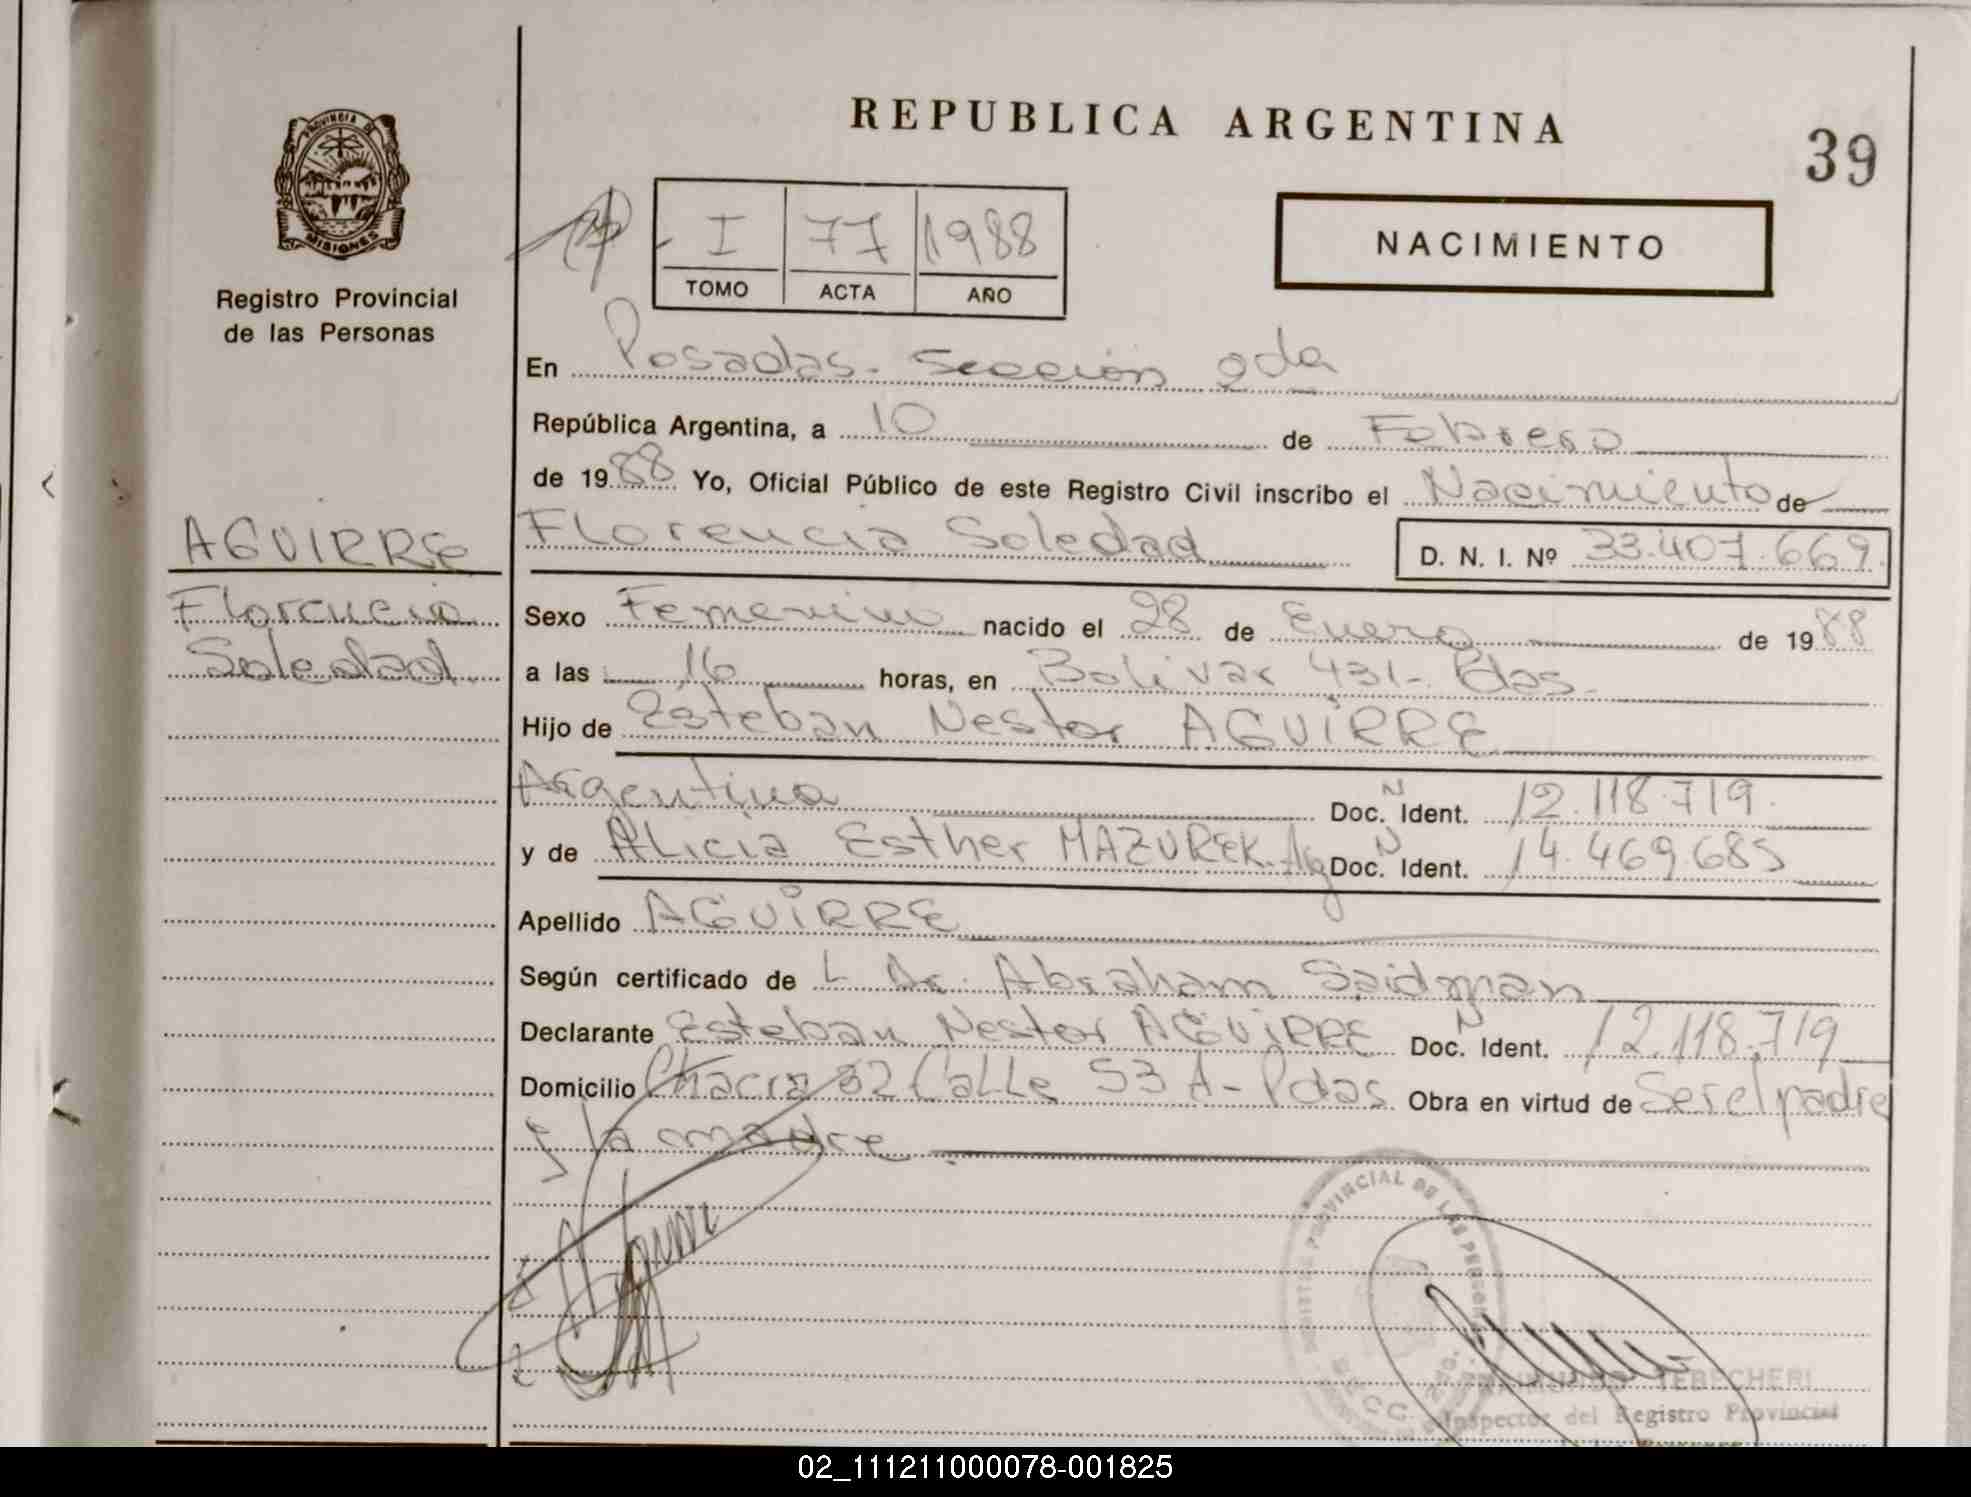 REPUBLICA ARGENTINA
39
PROVINCIA DE
MISIONES
Registro Provincial
de las Personas
I 77 1988
TOMO ACTA AÑO
NACIMIENTO
En Posadas - Sección 2da
República Argentina, a 10 de Febrero
de 1988 Yo, Oficial Público de este Registro Civil inscribo el Nacimiento de
AGUIRRE
Florencia
Soledad
Florencia Soledad D. N. I. Nº 33.407.669
Sexo Femenino nacido el 28 de Enero de 1988
a las 16 horas, en Bolivar 431 - Pdas.
Hijo de Esteban Nestor AGUIRRE
Argentina Doc. N Ident. 12.118.719
y de Alicia Esther MAZUREK. Arg Doc. N Ident. 14.469.685
Apellido AGUIRRE
Según certificado de L Dr. Abraham Saidman
Declarante Esteban Nestor AGUIRRE Doc. N Ident. 12.118.719
Domicilio Chacra 32 Calle 53 A - Pdas Obra en virtud de Ser el padre
y la madre
PROVINCIAL DE LAS PERSON
TEBECHERI
Inspector del Registro Provincial
02_111211000078-001825